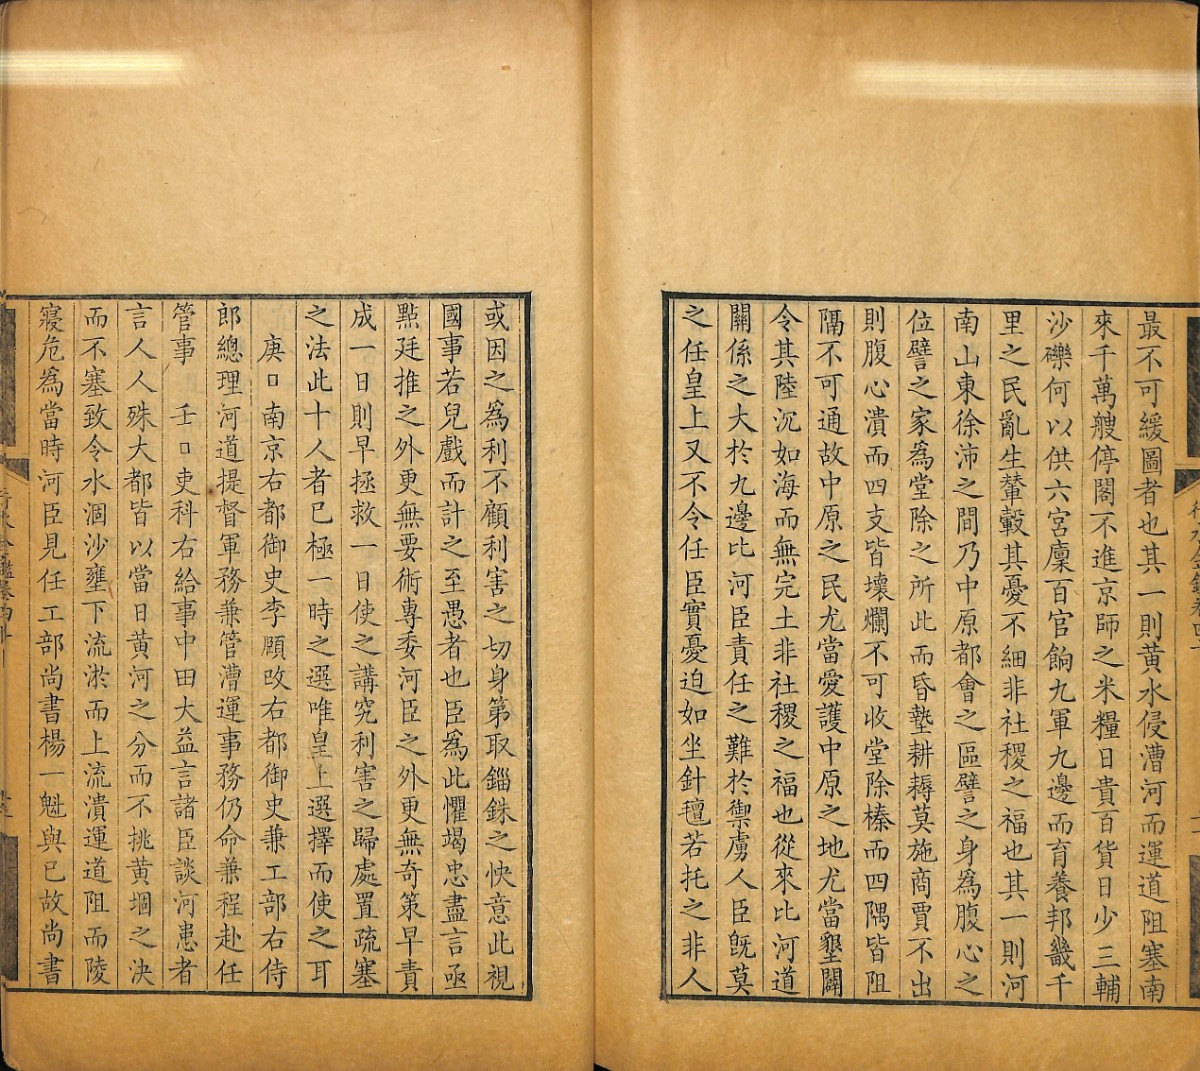 最不可緩圖者也其一則黃水侵漕河而運道阻塞南
來千萬艘停閣不進京師之米糧日貴百貨日少三輔
沙礫何以供六宮廩百官餉九軍九邊而育養邦畿千
里之民亂生輦轂其憂不細非社稷之福也其一則河
南山東徐沛之間乃中原都會之區譬之身為腹心之
位譬之家為堂除之所此而昏墊耕耨莫施商賈不出
則腹心潰而四支皆壞爛不可收堂除榛而四隅皆阻
隔不可通故中原之民尤當愛護中原之地尤當墾闢
令其陸沉如海而無完土非社稷之福也從來比河道
關係之大於九邊比河臣責任之難於禦虜人臣既莫
之任皇上又不令任臣實憂迫如坐針氊若托之非人
或因之為利不顧利害之切身第取錙銖之快意此視
國事若兒戲而計之至愚者也臣為此懼竭忠盡言亟
點廷推之外更無要術專委河臣之外更無奇策早責
成一日則早拯救一日使之講究利害之歸處置疏塞
之法此十人者已極一時之選唯皇上選擇而使之耳
庚□南京右都御史李頤改右都御史兼工部右侍
郎總理河道提督軍務兼管漕運事務仍命兼程赴任
管事　壬□吏科右給事中田大益言諸臣談河患者
言人人殊大都皆以當日黃河之分而不挑黃堌之決
而不塞致令水涸沙壅下流淤而上流潰運道阻而陵
寢危為當時河臣見任工部尚書楊一魁與已故尚書